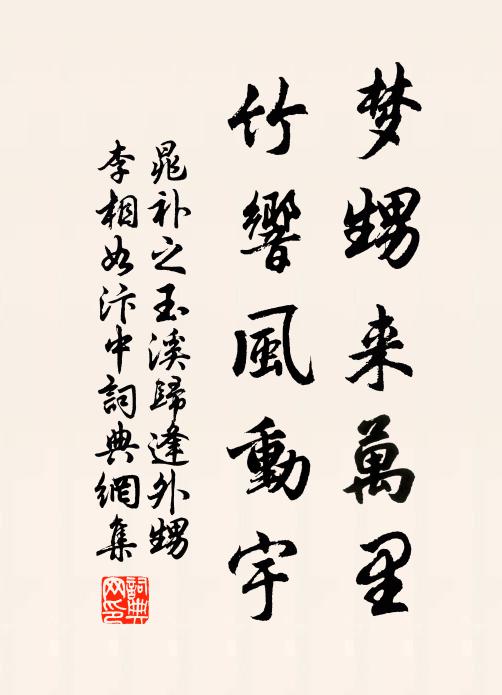 梦甥来萬里
竹響風動宇
晁补之玉溪歸逢外甥
李相如汴中詞典網集
詞典网印